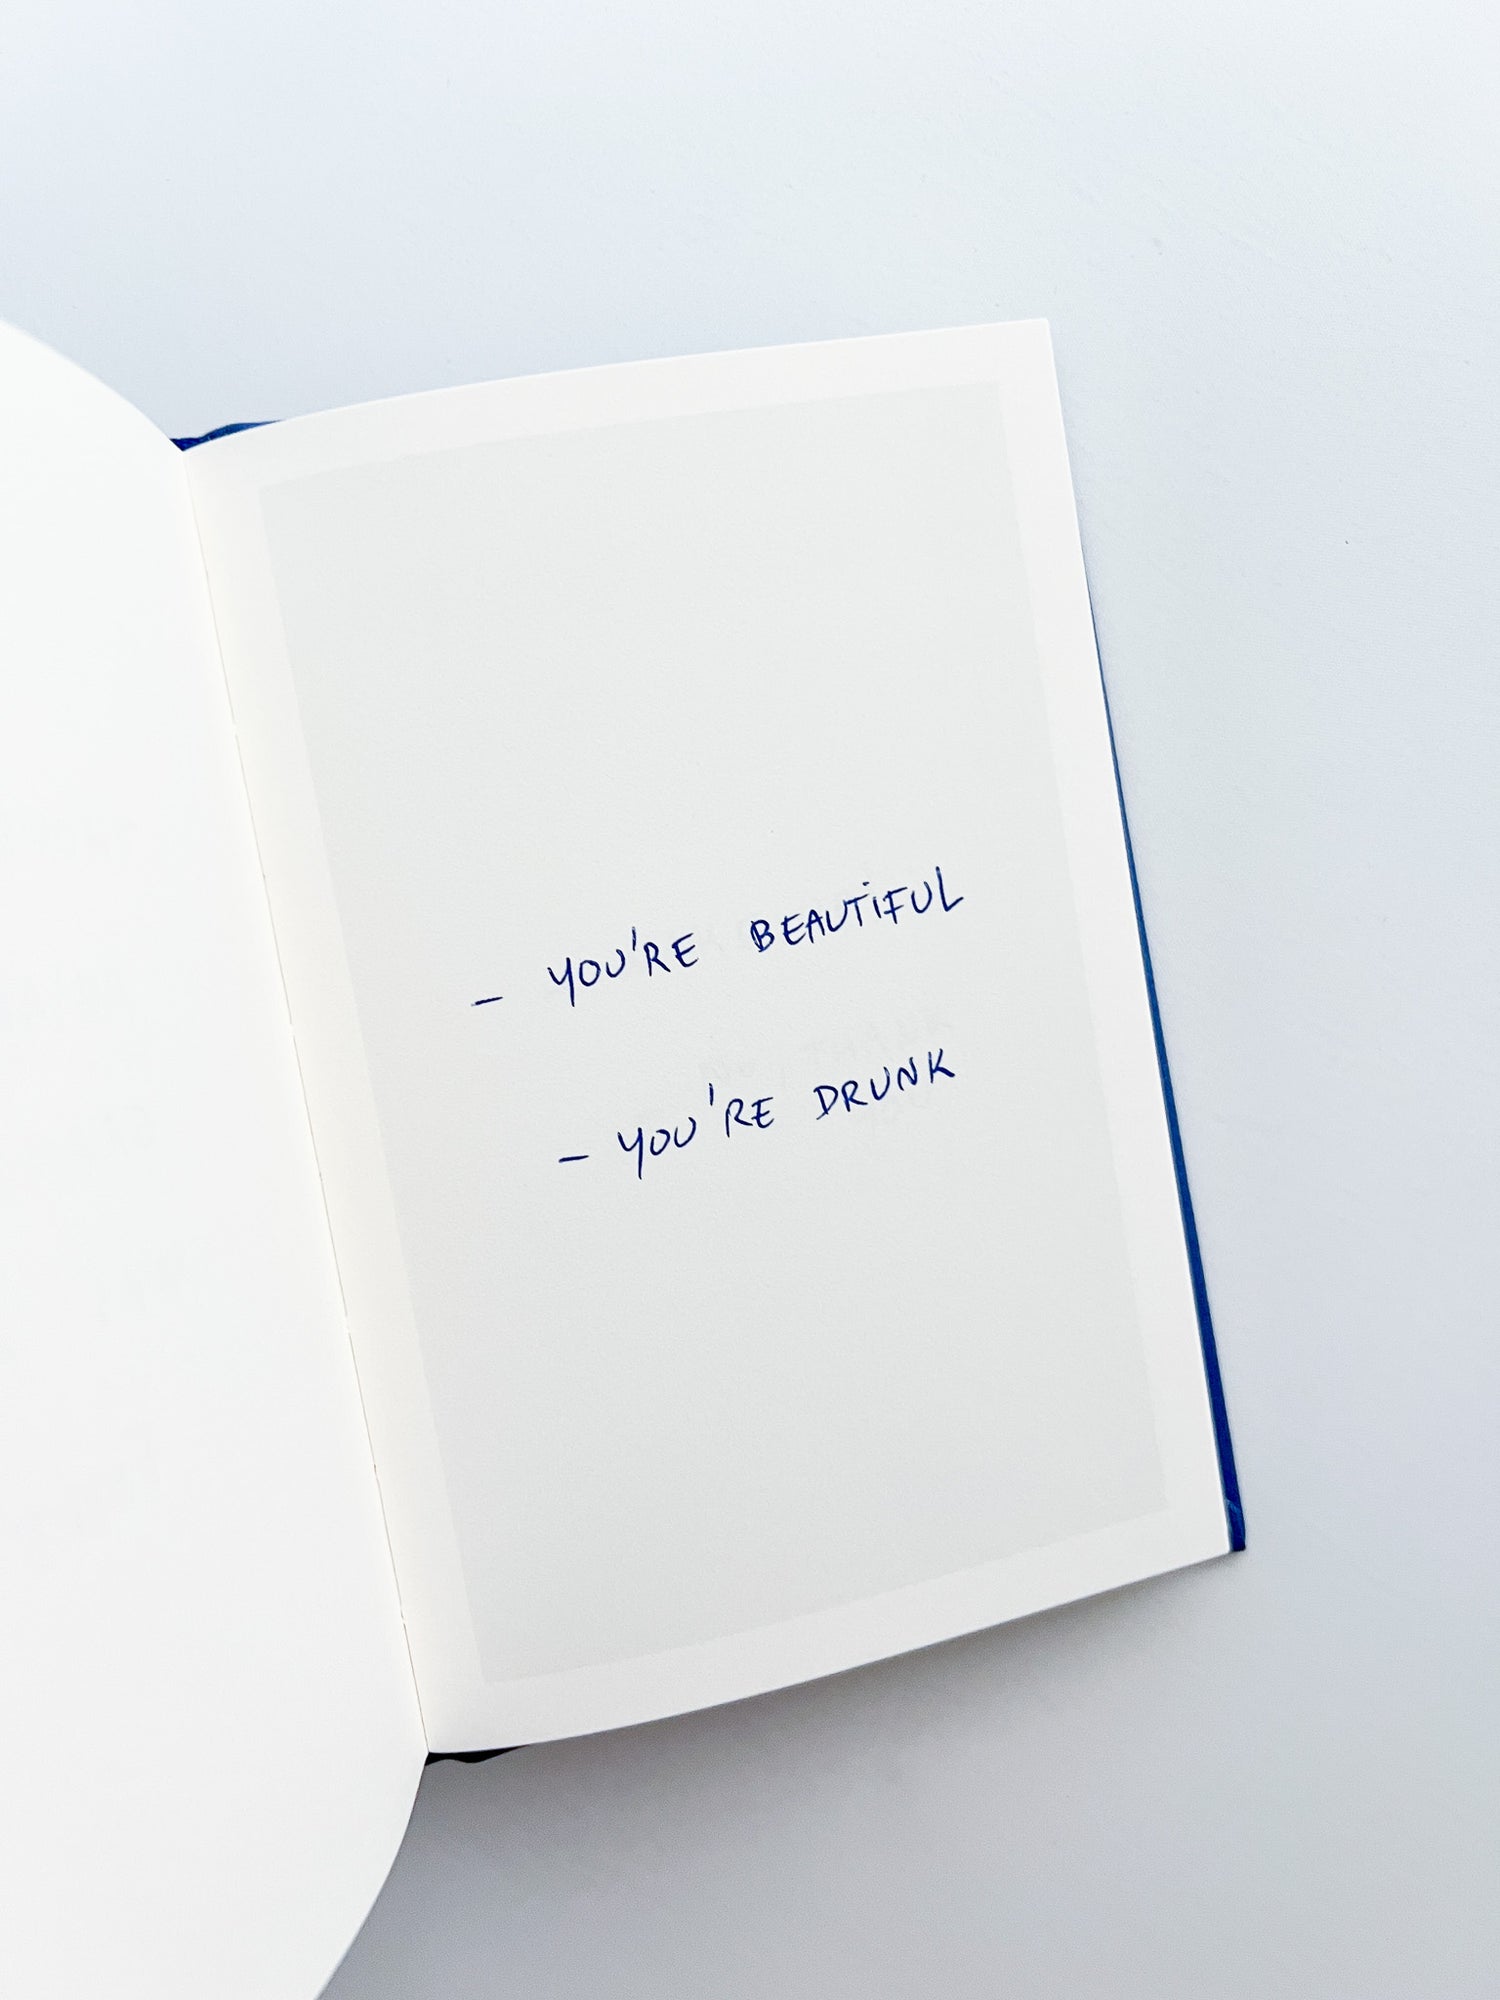 - YOU'RE BEAUTiFUL
- YOU'RE DRUNK